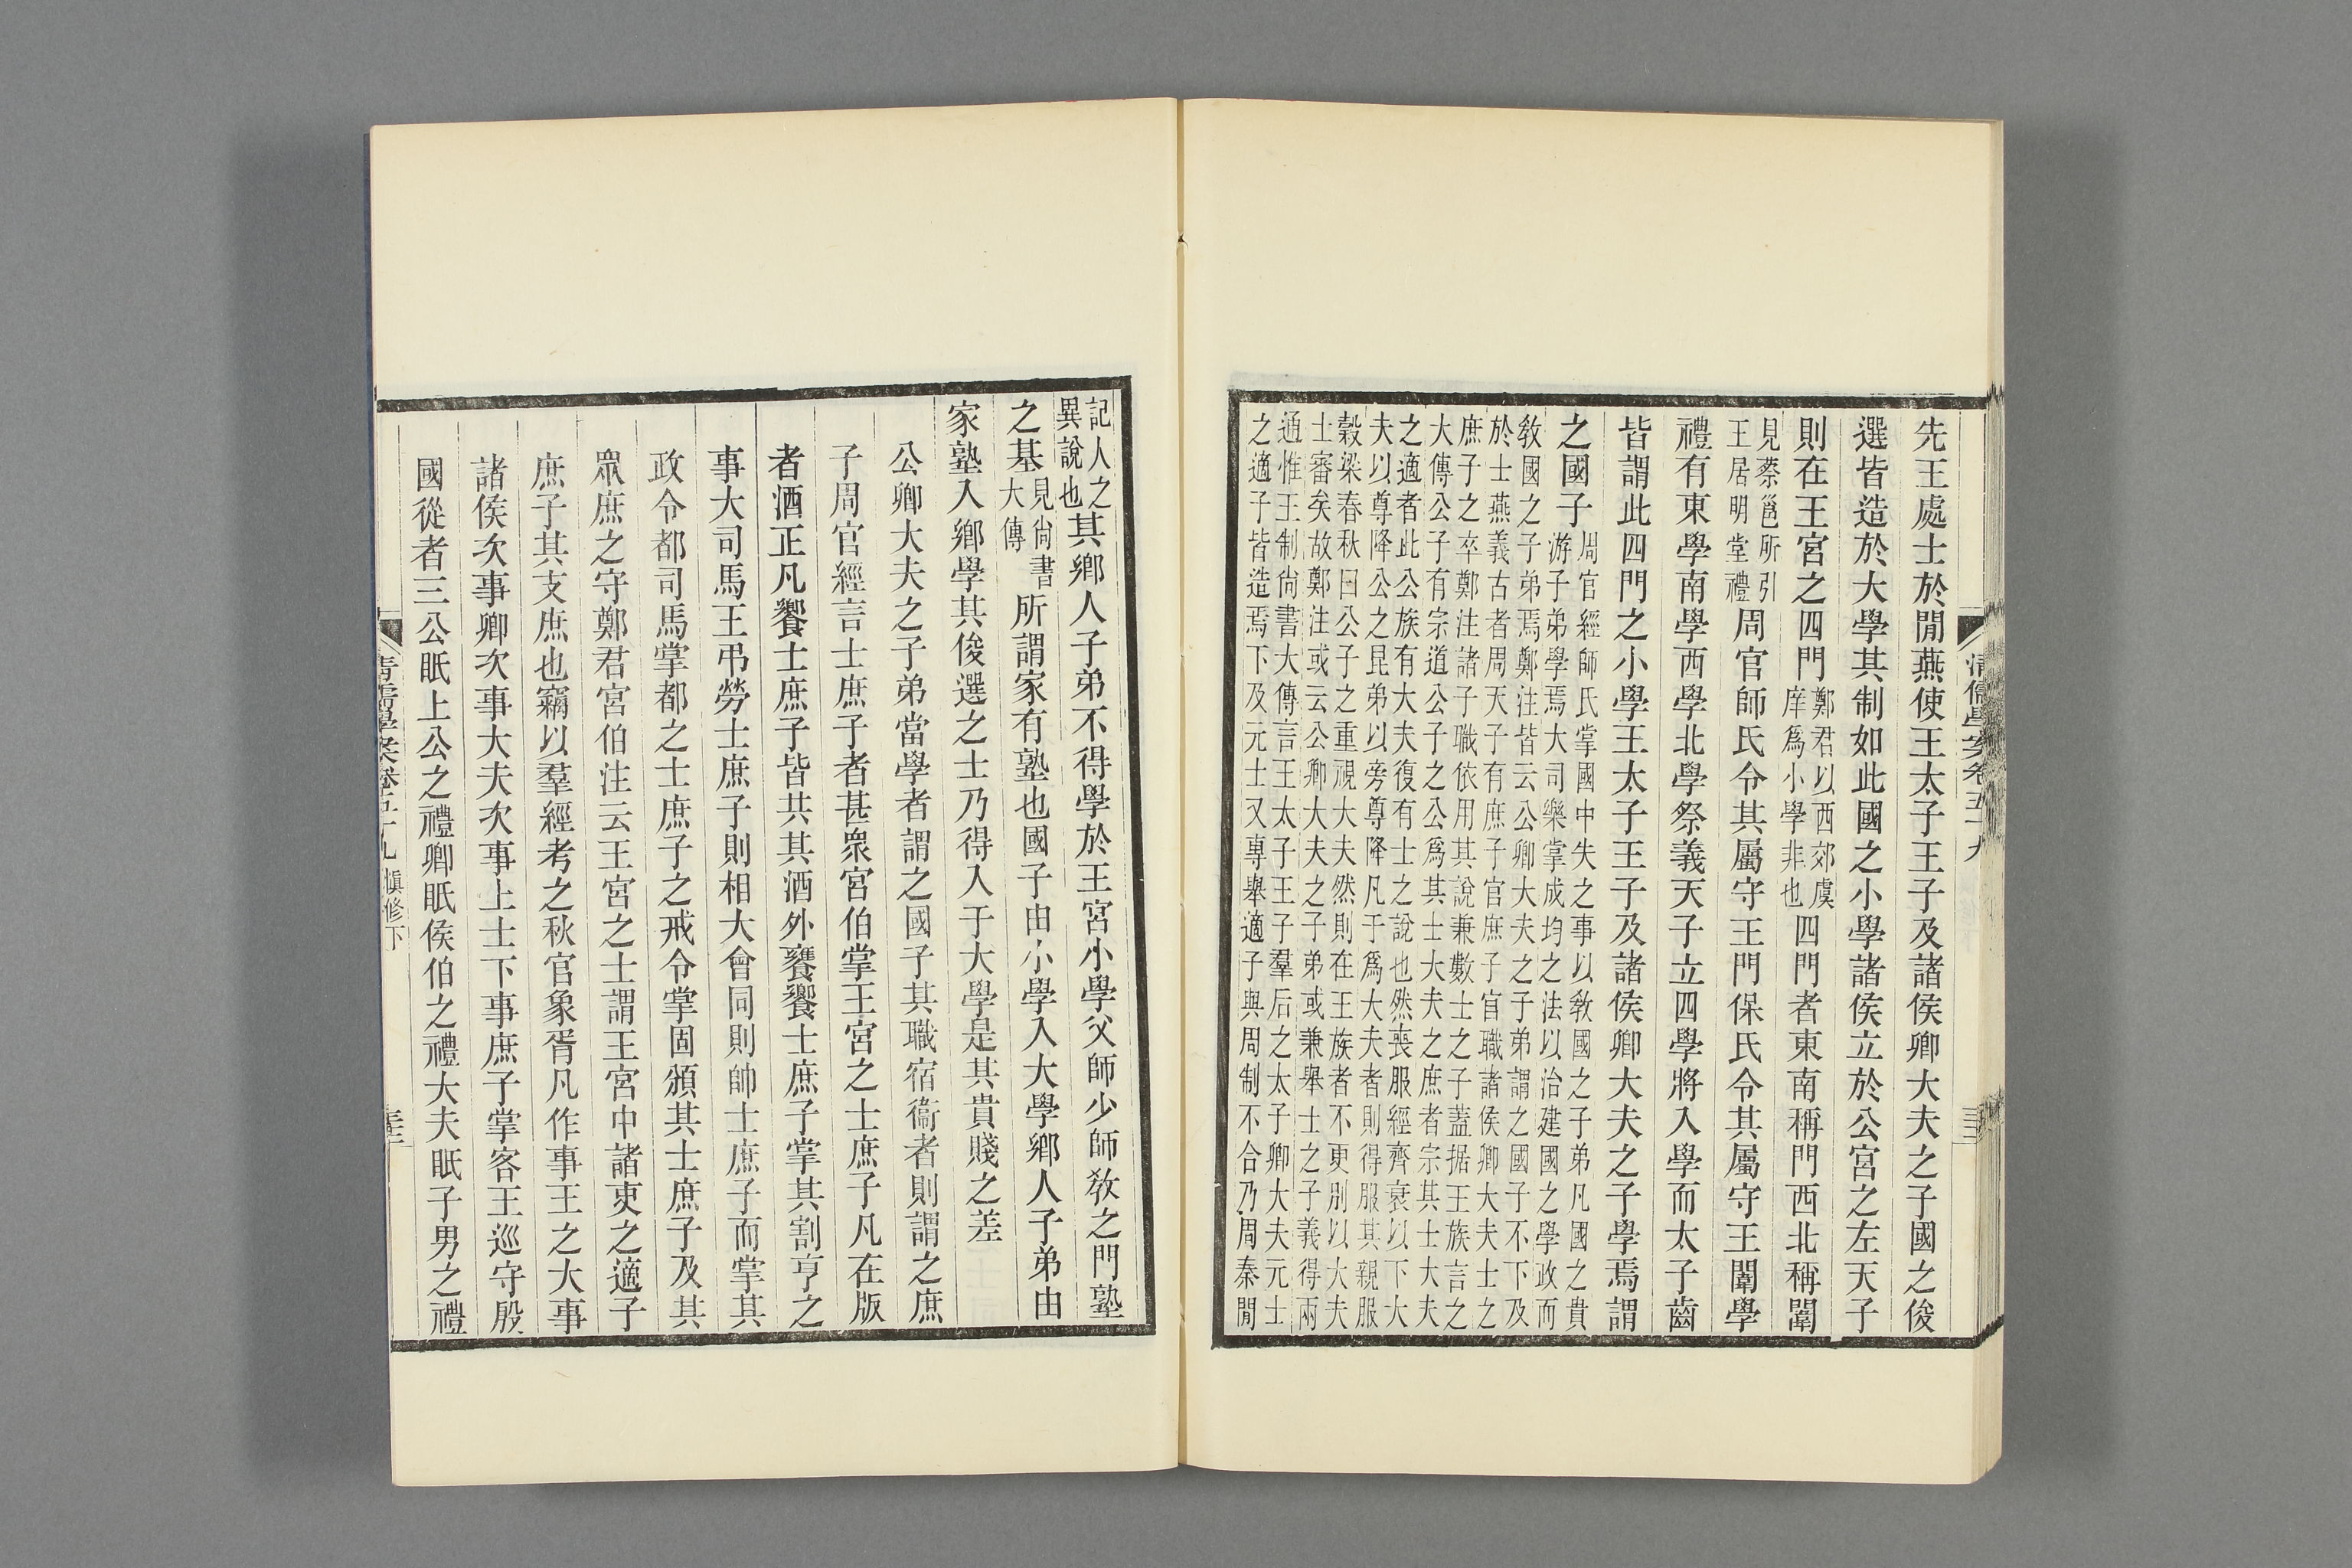 清儒學案卷五十九
先王處士於閒燕使王太子王子及諸侯卿大夫之子國之俊
選皆造於大學其制如此國之小學諸侯立於公宮之左天子
則在王宮之四門鄭君以西郊虞庠爲小學非也四門者東南稱門西北稱闈
見蔡邕所引王居明堂禮周官師氏令其屬守王門保氏令其屬守王闈學
禮有東學南學西學北學祭義天子立四學將入學而太子齒
皆謂此四門之小學王太子王子及諸侯卿大夫之子學焉謂
之國子周官經師氏掌國中失之事以敎國之子弟凡國之貴
游子弟學焉大司樂掌成均之法以治建國之學政而
敎國之子弟焉鄭注皆云公卿大夫之子弟謂之國子不下及
於士燕義古者周天子有庶子官庶子官職諸侯卿大夫士之
庶子之卒鄭注諸子職依用其說兼數士之子蓋据王族言之
大傳公子有宗道公子之公爲其士大夫之庶者宗其士大夫
之適者此公族有大夫復有士之說也然喪服經齊衰以下大
夫以尊降公之昆弟以旁尊降凡于爲大夫者則得服其親服
穀梁春秋曰公子之重視大夫然則在王族者不更別以大夫
士審矣故鄭注或云公卿大夫之子弟或兼舉士之子義得兩
通惟王制尙書大傳言王太子王子羣后之太子卿大夫元士
之適子皆造焉下及元士又專舉適子與周制不合乃周秦閒
記人之異說也其鄉人子弟不得學於王宮小學父師少師敎之門塾
之基見尙書大傳所謂家有塾也國子由小學入大學鄉人子弟由
家塾入鄉學其俊選之士乃得入于大學是其貴賤之差
公卿大夫之子弟當學者謂之國子其職宿衞者則謂之庶
子周官經言士庶子者甚衆宮伯掌王宮之士庶子凡在版
者酒正凡饗士庶子皆共其酒外饔饗士庶子掌其割亨之
事大司馬王弔勞士庶子則相大會同則帥士庶子而掌其
政令都司馬掌都之士庶子之戒令掌固頒其士庶子及其
衆庶之守鄭君宮伯注云王宮之士謂王宮中諸吏之適子
庶子其支庶也竊以羣經考之秋官象胥凡作事王之大事
諸侯次事卿次事大夫次事上士下事庶子掌客王巡守殷
國從者三公眂上公之禮卿眂侯伯之禮大夫眂子男之禮
清儒學案卷五十九 愼修下